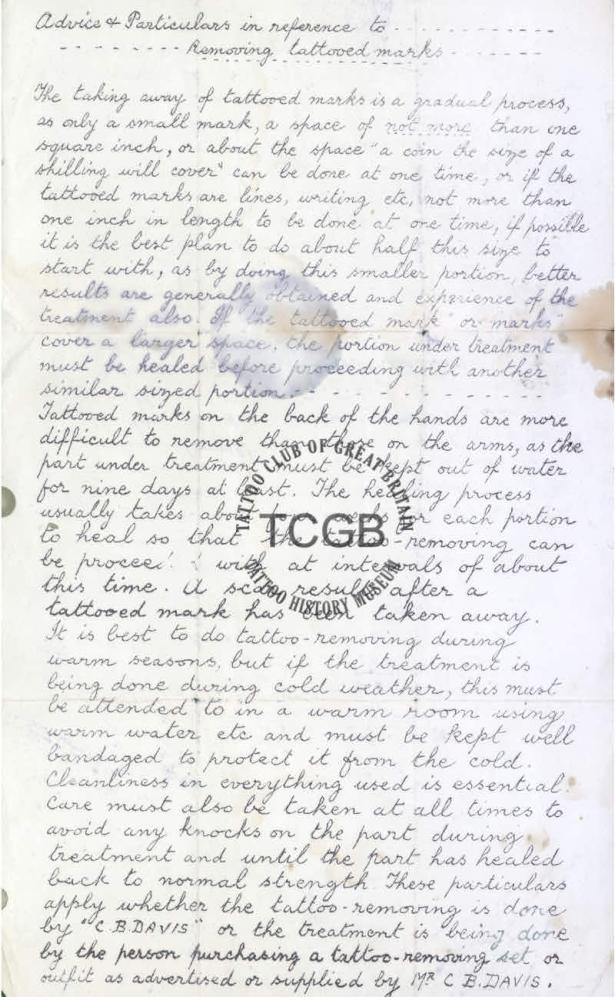 Advice & Particulars in reference to
Removing tattooed marks
The taking away of tattooed marks is a gradual process,
as only a small mark, a space of not more than one
square inch, or about the space "a coin the size of a
shilling will cover" can be done at one time, or if the
tattooed marks are lines, writing etc, not more than
one inch in length to be done at one time, if possible
it is the best plan to do about half this size to
start with, as by doing this smaller portion, better
results are generally obtained and experience of the
treatment also. If the tattooed mark "or marks"
cover a larger space, the portion under treatment
must be healed before proceeding with another
similar sized portion.
Tattooed marks on the back of the hands are more
difficult to remove than those on the arms, as the
part under treatment must be kept out of water
for nine days at least. The healing process
usually takes about for each portion
to heal so that the tattoo-removing can
be proceed with at intervals of about
this time. A scar results after a
tattooed mark has been taken away.
It is best to do tattoo-removing during
warm seasons, but if the treatment is
being done during cold weather, this must
be attended to in a warm room using
warm water etc and must be kept well
bandaged to protect it from the cold.
Cleanliness in everything used is essential.
Care must also be taken at all times to
avoid any knocks on the part during
treatment and until the part has healed
back to normal strength. These particulars
apply whether the tattoo-removing is done
by "C.B.DAVIS" or the treatment is being done
by the person purchasing a tattoo-removing set or
outfit as advertised or supplied by MR C B.DAVIS.
TATTOO CLUB OF GREAT BRITAIN
TCGB
TATTOO HISTORY MUSEUM